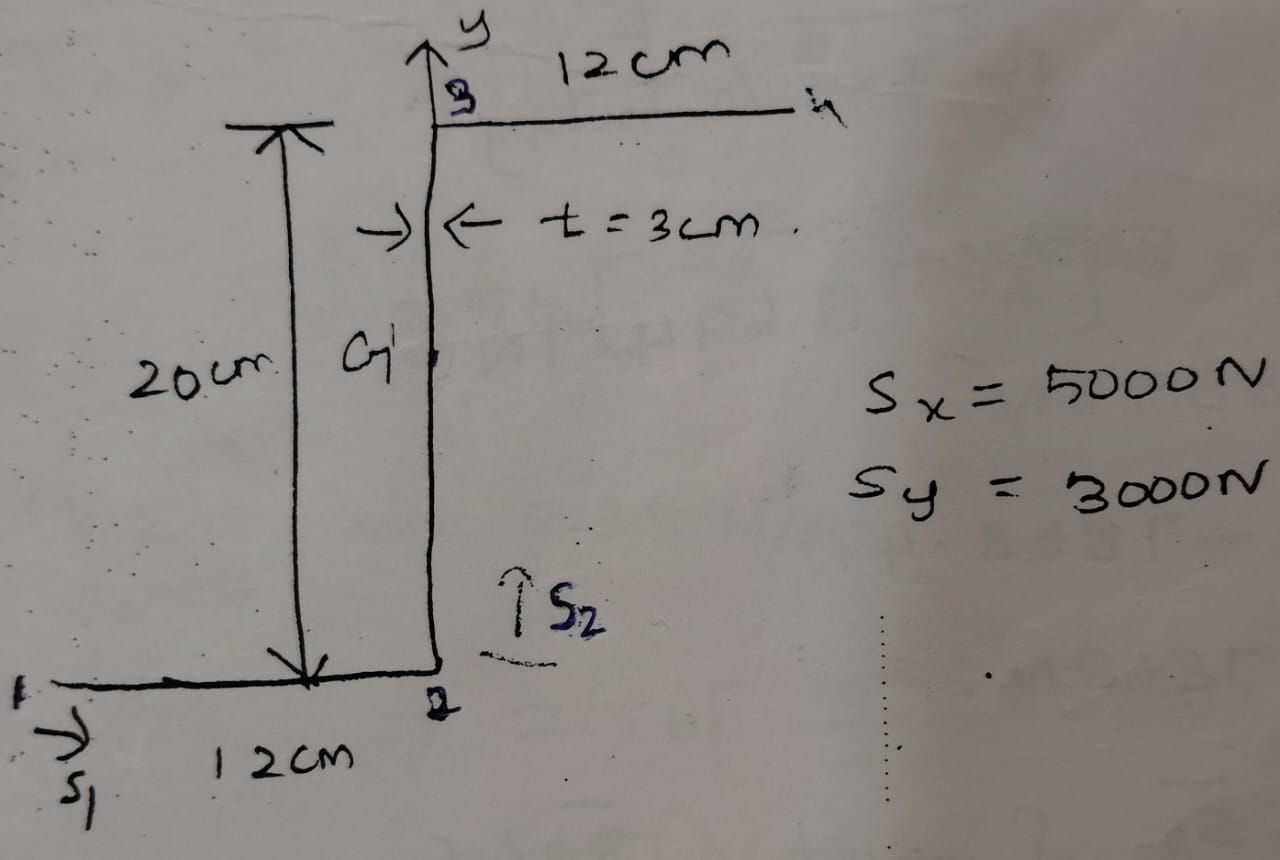 y
12 cm
3
4
t = 3 cm.
20 cm
G
Sx = 5000 N
Sy = 3000 N
S2
1
2
S1
12 cm